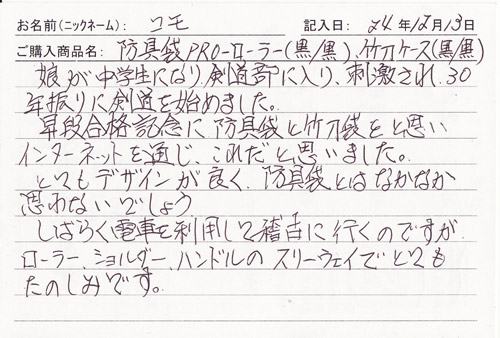 お名前(ニックネーム): コモ 記入日: 24年12月13日
ご購入商品名: 防具袋PRO-ローラー(黒/黒)、竹刀ケース(黒/黒)
娘が中学生になり、剣道部に入り、刺激され、30
年振りに剣道を始めました。
昇段合格記念に防具袋と竹刀袋をと思い
インターネットを通じ、これだと思いました。
とてもデザインが良く、防具袋とはなかなか
思わないでしょう
しばらく電車を利用して稽古に行くのですが
ローラー、ショルダー、ハンドルのスリーウェイでとても
たのしみです。